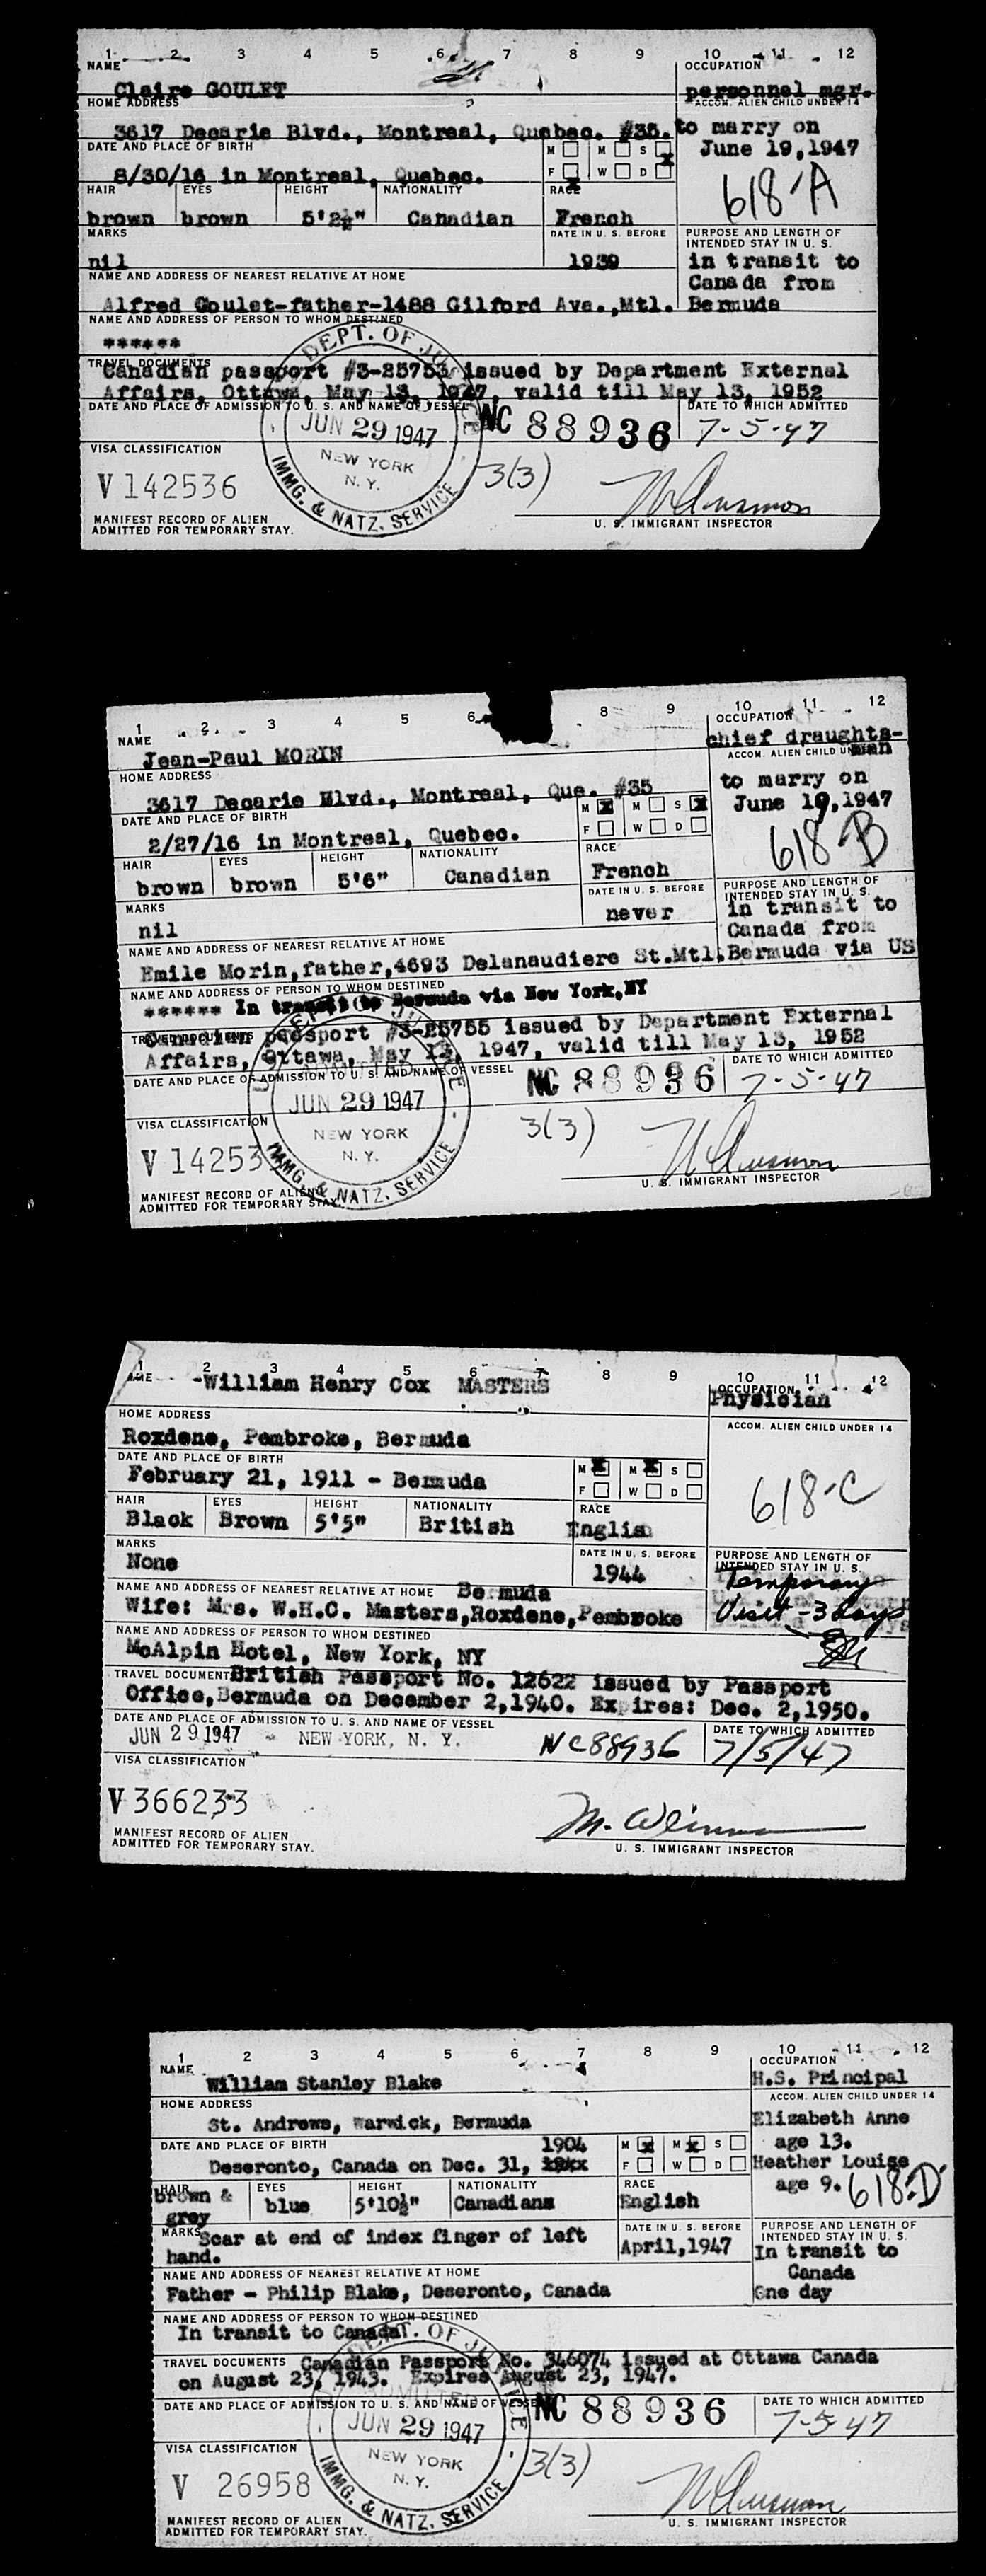 1 2 3 4 5 6 7 8 9 10 11 12
NAME
OCCUPATION
Claire GOULET
personnel mgr.
HOME ADDRESS
ACCOM. ALIEN CHILD UNDER 14
3617 Decarie Blvd., Montreal, Quebec. #35.
to marry on
June 19,1947
DATE AND PLACE OF BIRTH
M M S X
8/30/16 in Montreal, Quebec.
F X W D
618-A
HAIR EYES HEIGHT NATIONALITY RACE
brown brown 5'2½" Canadian French
MARKS
DATE IN U. S. BEFORE
PURPOSE AND LENGTH OF
INTENDED STAY IN U. S.
nil
1939
in transit to
Canada from
Bermuda
NAME AND ADDRESS OF NEAREST RELATIVE AT HOME
Alfred Goulet-father-1488 Gilford Ave.,Mtl.
NAME AND ADDRESS OF PERSON TO WHOM DESTINED
******
TRAVEL DOCUMENTS
Canadian passport #3-25753 issued by Department External
Affairs, Ottawa, May 13, 1947, valid till May 13, 1952
DATE AND PLACE OF ADMISSION TO U. S. AND NAME OF VESSEL
DATE TO WHICH ADMITTED
DEPT. OF JUSTICE
JUN 29 1947
NEW YORK
N. Y.
IMMG. & NATZ. SERVICE
NC 88936
7-5-47
VISA CLASSIFICATION
3(3)
V 142536
U. S. IMMIGRANT INSPECTOR
MANIFEST RECORD OF ALIEN
ADMITTED FOR TEMPORARY STAY.
1 2 3 4 5 6 8 9 10 11 12
NAME
OCCUPATION
Jean-Paul MORIN
chief draughts-
man
HOME ADDRESS
ACCOM. ALIEN CHILD UN
3617 Decarie Blvd., Montreal, Que. #35
to marry on
June 19,1947
DATE AND PLACE OF BIRTH
M X M S X
2/27/16 in Montreal, Quebec.
F W D
618-B
HAIR EYES HEIGHT NATIONALITY RACE
brown brown 5'6" Canadian French
MARKS
DATE IN U. S. BEFORE
PURPOSE AND LENGTH OF
INTENDED STAY IN U. S.
nil
never
in transit to
Canada from
Bermuda via US
NAME AND ADDRESS OF NEAREST RELATIVE AT HOME
Emile Morin,father,4693 Delanaudiere St.Mtl.
NAME AND ADDRESS OF PERSON TO WHOM DESTINED
****** In transit to Bermuda via New York,NY
TRAVEL DOCUMENTS
Canadian passport #3-25755 issued by Department External
Affairs, Ottawa, May 13, 1947, valid till May 13, 1952
DATE AND PLACE OF ADMISSION TO U. S. AND NAME OF VESSEL
DATE TO WHICH ADMITTED
JUN 29 1947
NEW YORK
N. Y.
IMMG. & NATZ. SERVICE
NC 88936
7-5-47
VISA CLASSIFICATION
3(3)
V 14253
U. S. IMMIGRANT INSPECTOR
MANIFEST RECORD OF ALIEN
ADMITTED FOR TEMPORARY STAY.
1 2 3 4 5 6 7 8 9 10 11 12
-William Henry Cox MASTERS
OCCUPATION
Physician
HOME ADDRESS
ACCOM. ALIEN CHILD UNDER 14
Roxdene, Pembroke, Bermuda
DATE AND PLACE OF BIRTH
M X M X S
February 21, 1911 - Bermuda
F W D
618-C
HAIR EYES HEIGHT NATIONALITY RACE
Black Brown 5'5" British English
MARKS
DATE IN U. S. BEFORE
PURPOSE AND LENGTH OF
INTENDED STAY IN U. S.
None
1944
Temporary
Visit - 3 days
NAME AND ADDRESS OF NEAREST RELATIVE AT HOME Bermuda
Wife: Mrs. W.H.C. Masters,Roxdene,Pembroke
NAME AND ADDRESS OF PERSON TO WHOM DESTINED
McAlpin Hotel, New York, NY
TRAVEL DOCUMENT British Passport No. 12622 issued by Passport
Office,Bermuda on December 2,1940. Expires: Dec. 2,1950.
DATE AND PLACE OF ADMISSION TO U. S. AND NAME OF VESSEL
DATE TO WHICH ADMITTED
JUN 29 1947 - NEW YORK, N. Y.
NC88936
7/5/47
VISA CLASSIFICATION
V 366233
U. S. IMMIGRANT INSPECTOR
MANIFEST RECORD OF ALIEN
ADMITTED FOR TEMPORARY STAY.
1 2 3 4 5 6 7 8 9 10 11 12
NAME
OCCUPATION
William Stanley Blake
H.S. Principal
HOME ADDRESS
ACCOM. ALIEN CHILD UNDER 14
St. Andrews, Warwick, Bermuda
Elizabeth Anne
age 13.
Heather Louise
age 9.
618-D
DATE AND PLACE OF BIRTH
1904
M X M X S
Deseronto, Canada on Dec. 31,
F W D
HAIR EYES HEIGHT NATIONALITY RACE
brown & grey blue 5'10½" Canadians English
MARKS
DATE IN U. S. BEFORE
PURPOSE AND LENGTH OF
INTENDED STAY IN U. S.
Scar at end of index finger of left
hand.
April,1947
In transit to
Canada
One day
NAME AND ADDRESS OF NEAREST RELATIVE AT HOME
Father - Philip Blake, Deseronto, Canada
NAME AND ADDRESS OF PERSON TO WHOM DESTINED
In transit to Canada
TRAVEL DOCUMENTS Canadian Passport No. 346074 issued at Ottawa Canada
on August 23, 1943. Expires August 23, 1947.
DATE AND PLACE OF ADMISSION TO U. S. AND NAME OF VESSEL
DATE TO WHICH ADMITTED
JUN 29 1947
NEW YORK
N. Y.
IMMG. & NATZ. SERVICE
NC 88936
7-5-47
VISA CLASSIFICATION
3(3)
V 26958
U. S. IMMIGRANT INSPECTOR
MANIFEST RECORD OF ALIEN
ADMITTED FOR TEMPORARY STAY.